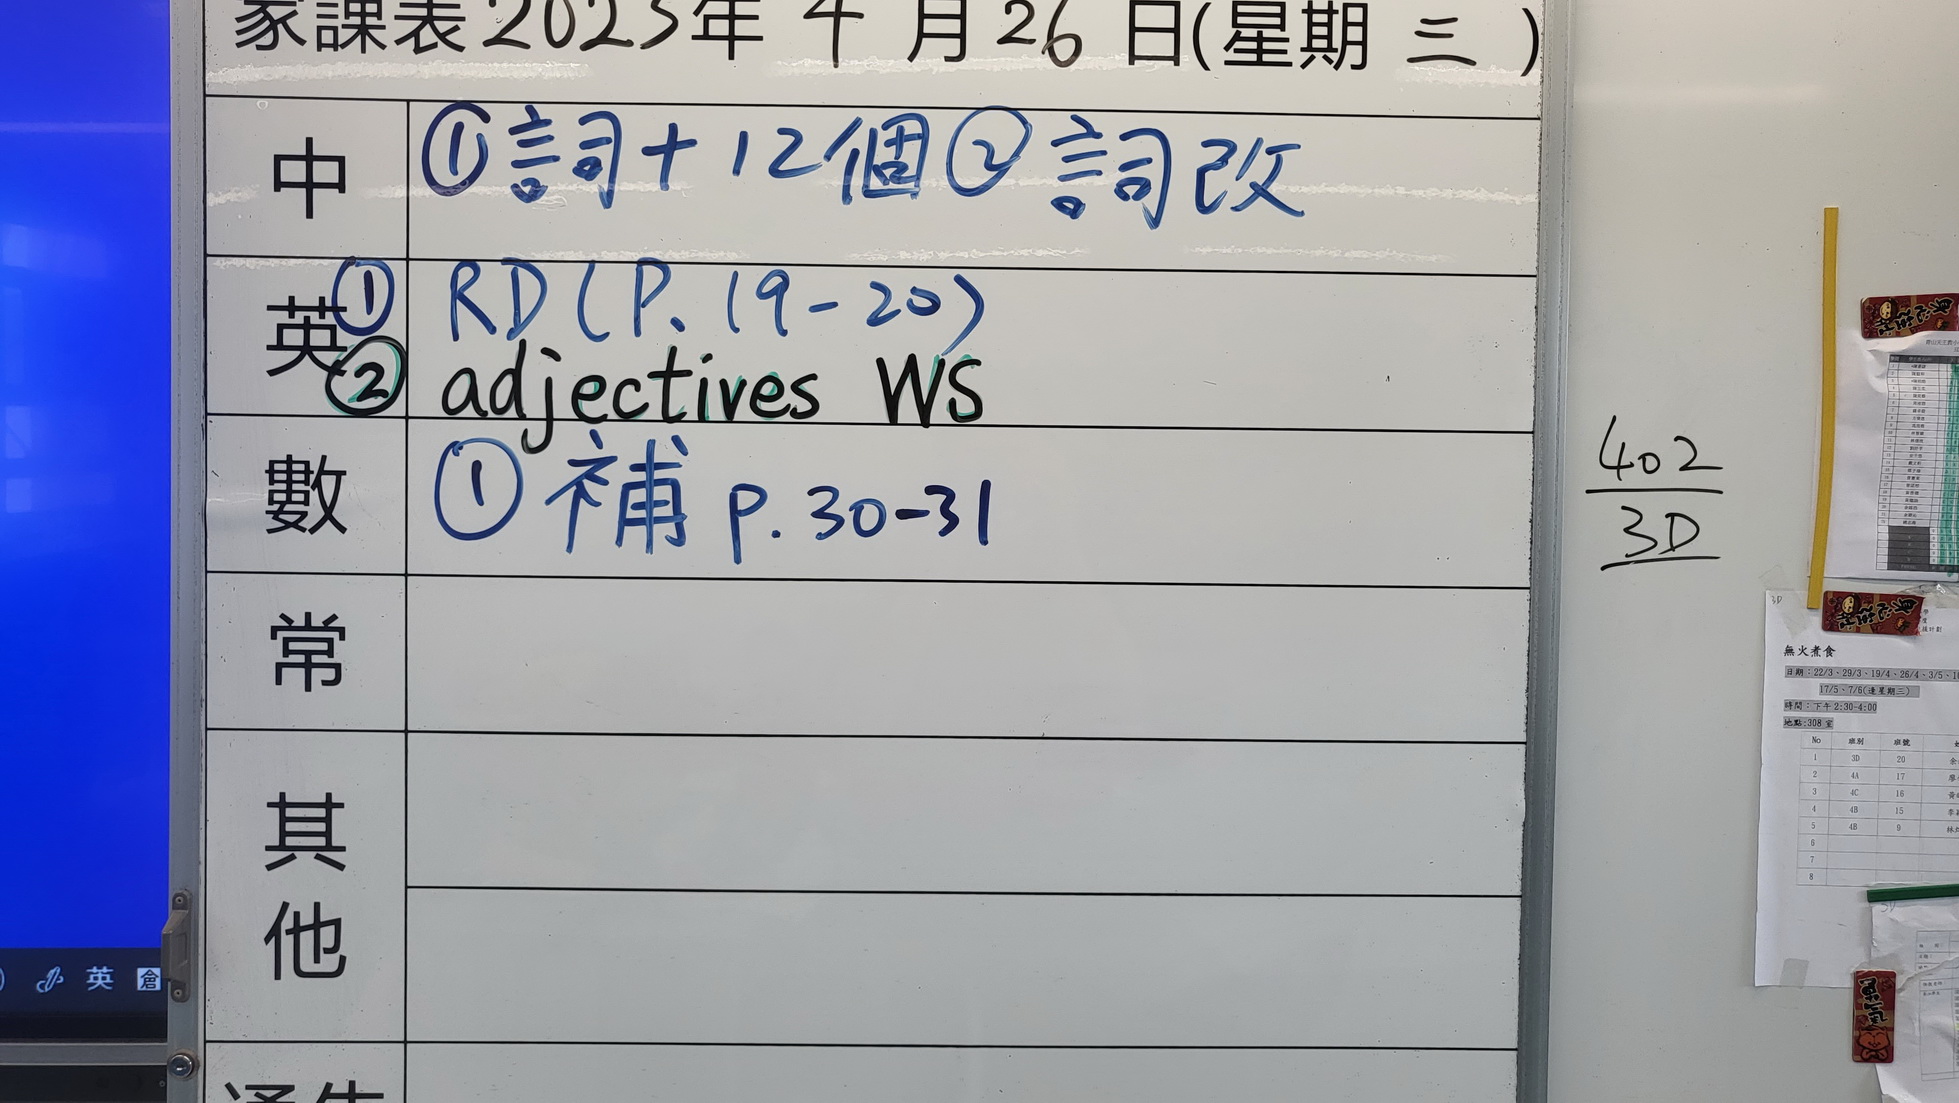 家課表2023年 4 月 26 日(星期 三 )
中
① 詞+12個 ② 詞改
英
① RD (P. 19-20)
② adjectives WS
數
① 補 p. 30-31
常
其他
通告
402
3D
英
倉
3D
無火煮食
日期：22/3、29/3、19/4、26/4、3/5、
17/5、7/6(逢星期三)
時間：下午 2:30-4:00
地點:308 室
No 班別 班號
1 3D 20
2 4A 17
3 4C 16
4 4B 15
5 4B 9
6
7
8